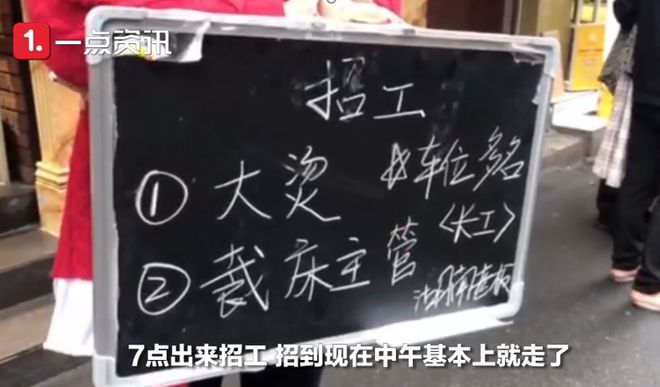 1. 一点资讯
招工
① 大烫 车位多名
<长工>
② 裁床主管 湖南老板
7点出来招工 招到现在中午基本上就走了